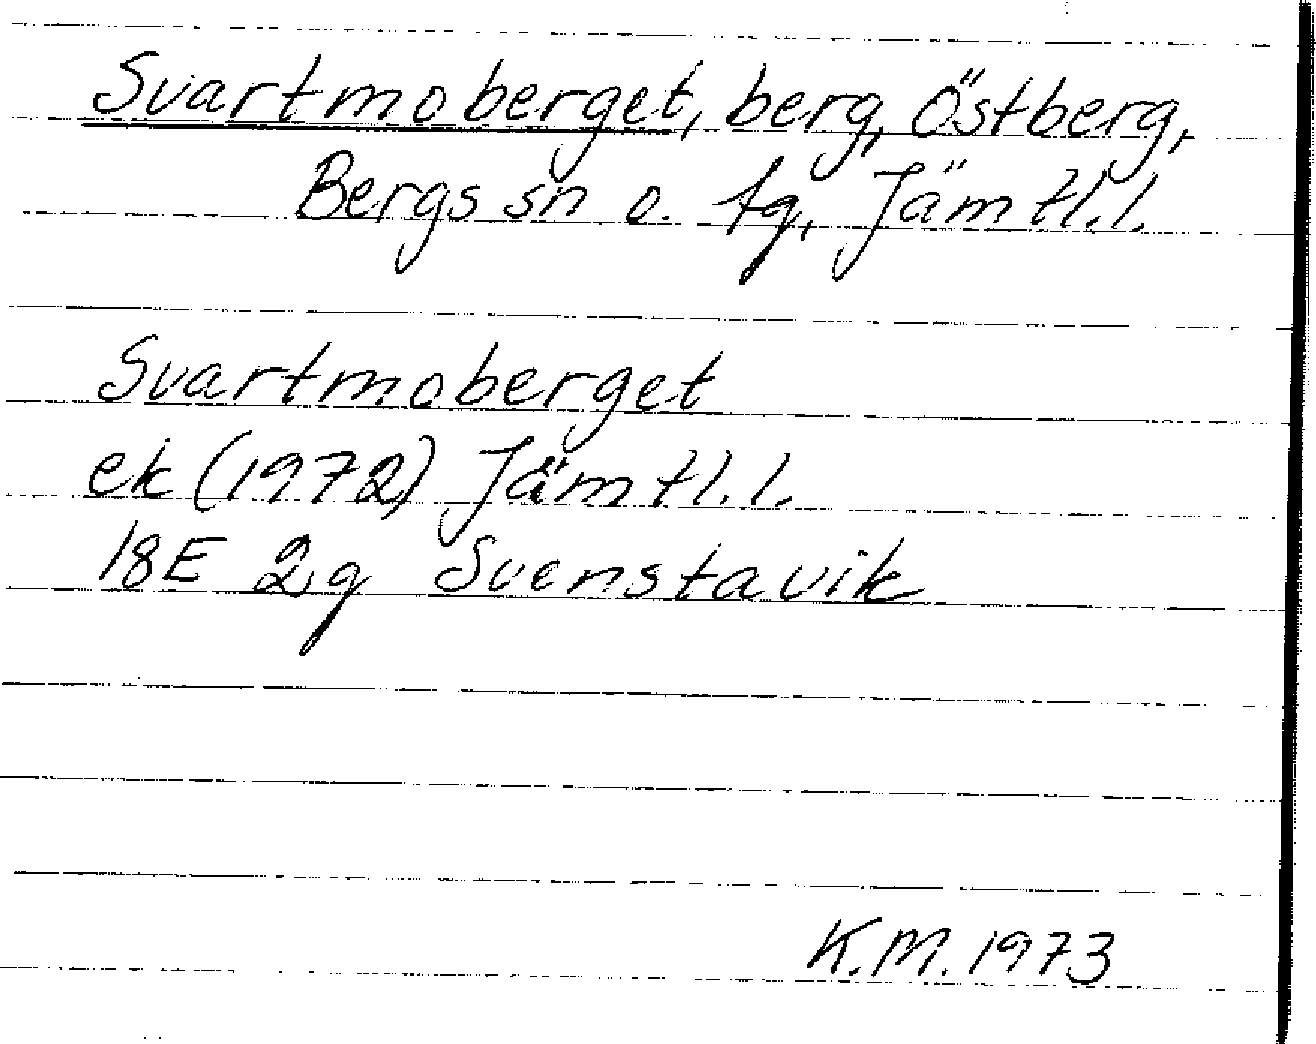 Svartmoberget, berg, Östberg,
Bergs sn o. tg, Jämtl.l.
Svartmoberget
ek (1972) Jämtl.l.
18E 2g Svenstavik
K.M. 1973